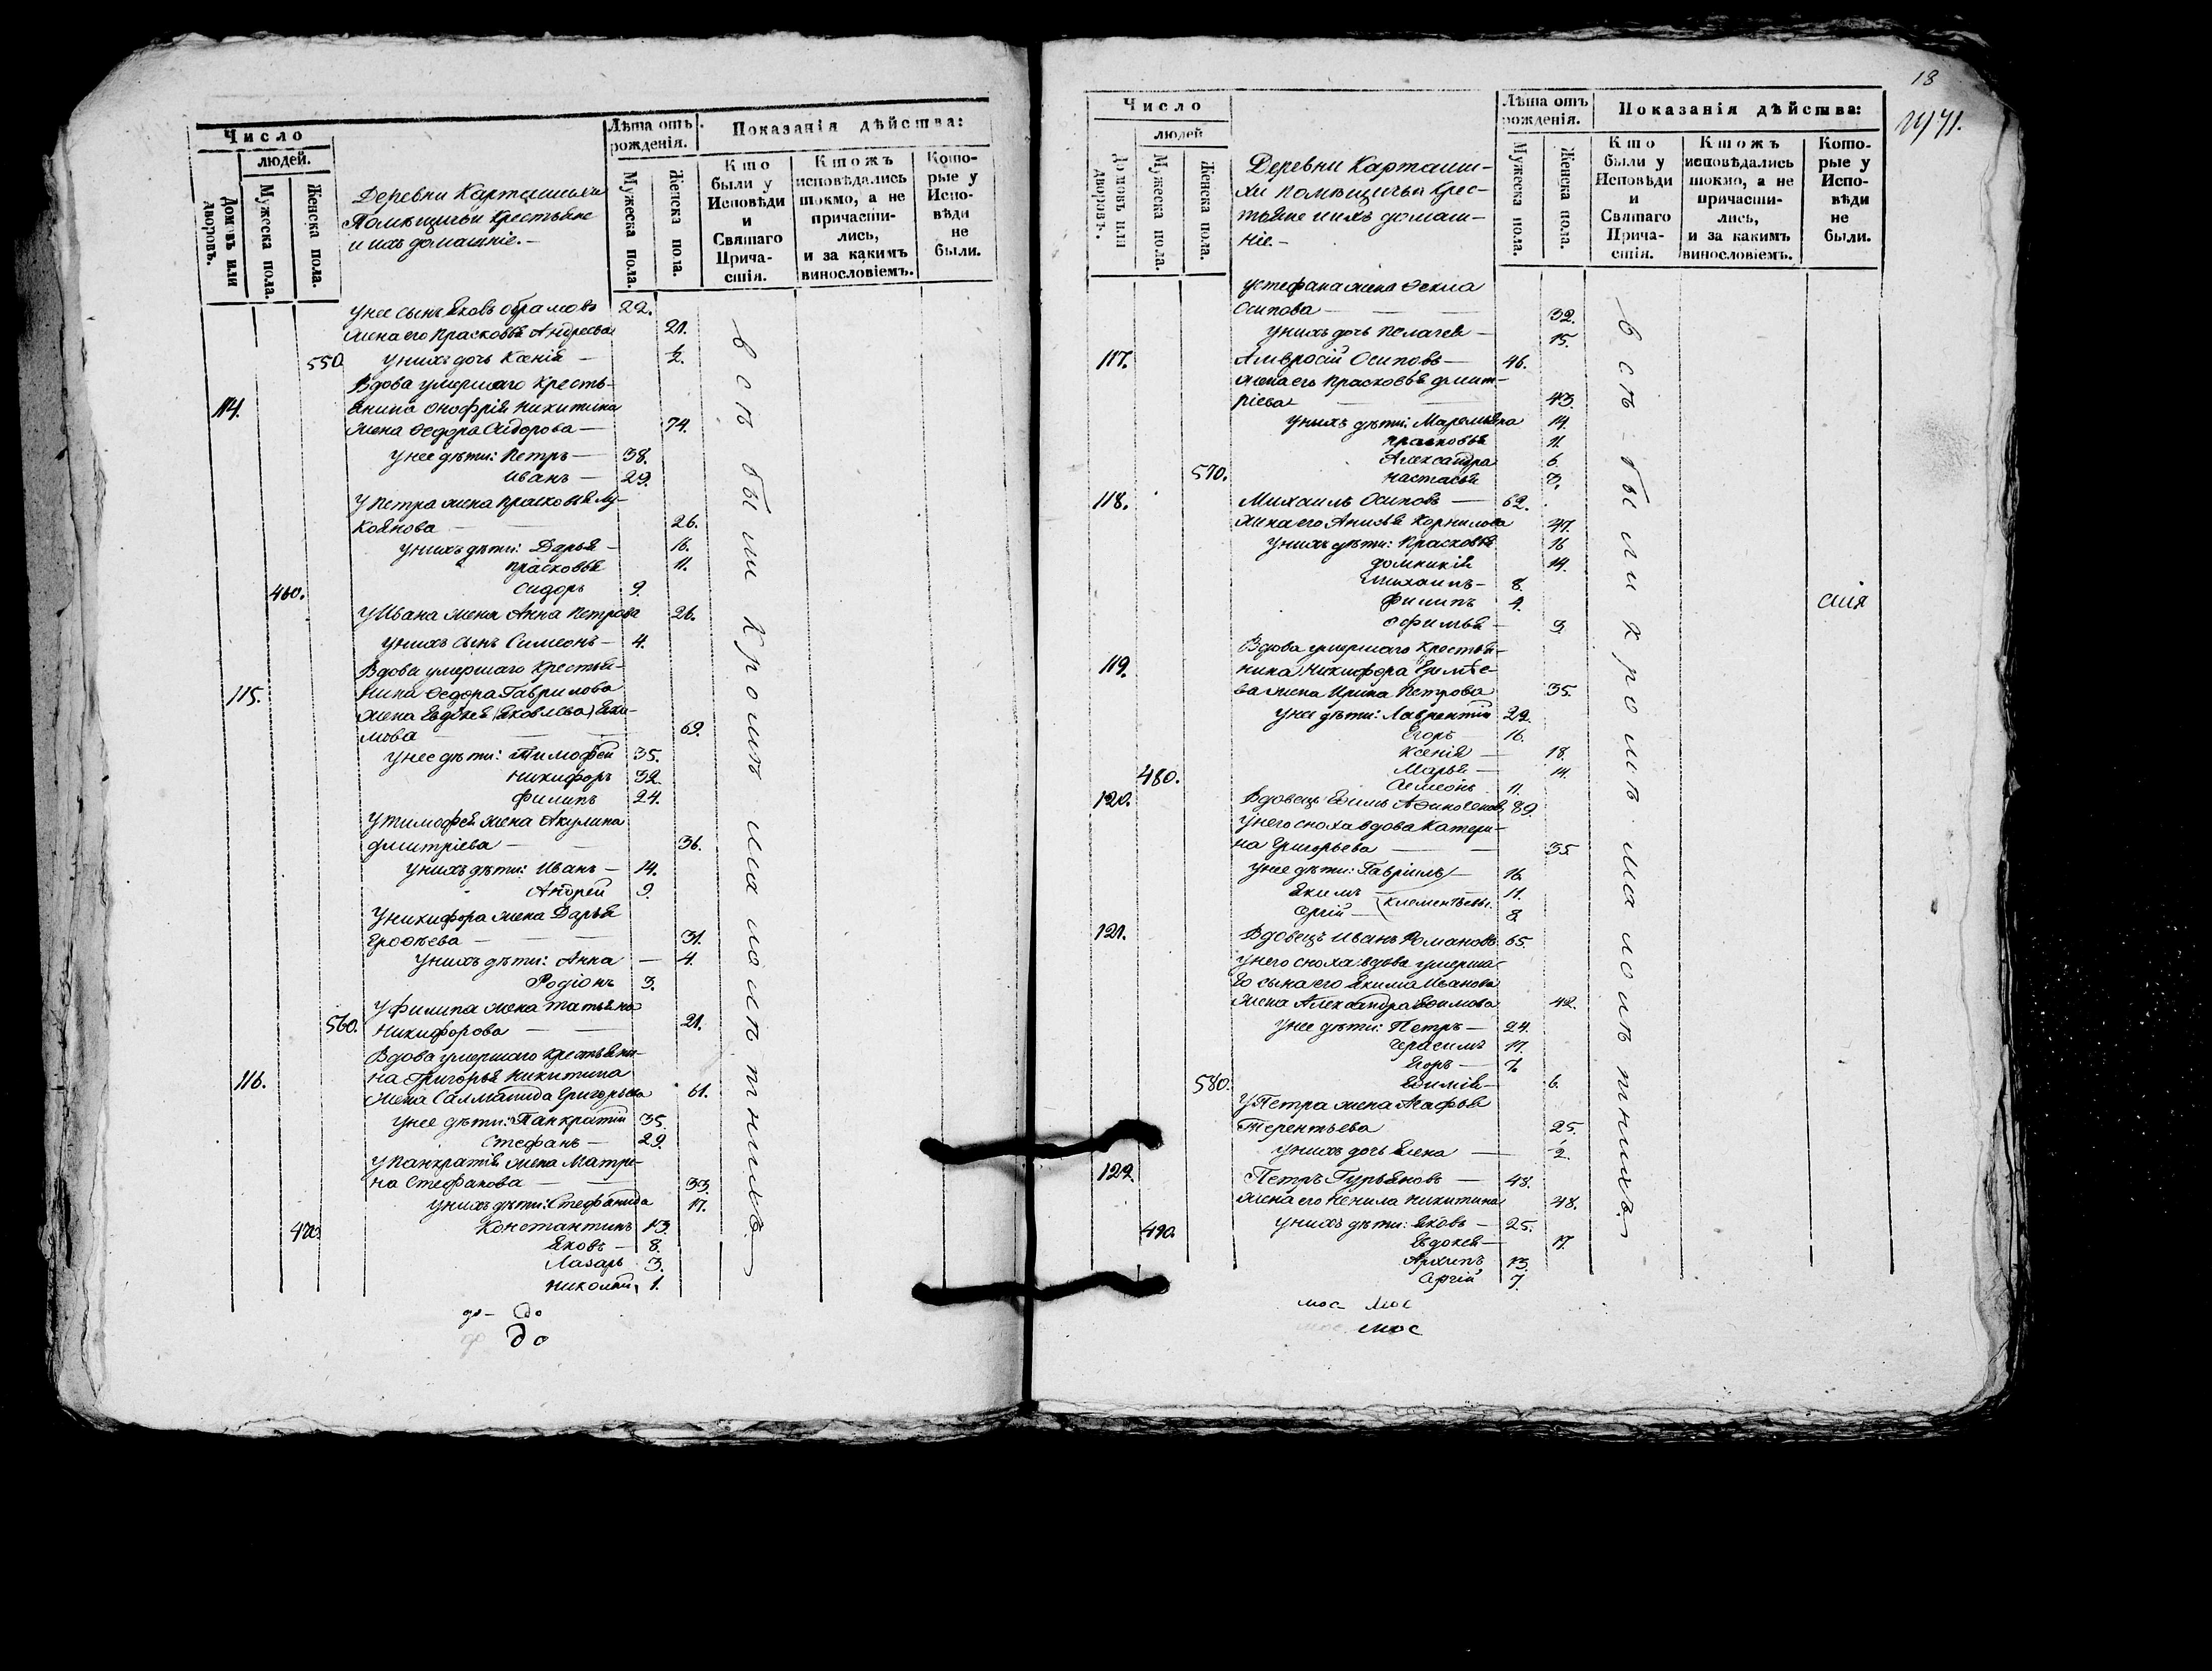 Число
людей.
Домовъ или дворовъ.
Мужеска пола.
Женска пола.
Деревни Карташихи
Помѣщичьи крестьяне
и ихъ домашніе. –
Лѣта отъ рожденія.
Мужеска пола.
Женска пола.
Показанія дѣйства:
Кто были у Исповѣди и Святаго Прича-
стія.
Ктожъ исповѣдались
токмо, а не причасти-
лись,
и за какимъ
винословіемъ.
Кото-
рые у
Испо-
вѣди
не
были.
у нее сынъ Яковъ Обрамовъ 22.
жена его Прасковья Андреева 21.
550. у нихъ дочь Ксенія – ½.
Вдова умершаго кресть-
114. янина Онофрія Никитина
жена Ѳедора Сидорова – 74.
у нее дѣти: Петръ – 38.
Иванъ – 29.
у Петра жена Прасковья Лу-
коянова – 26.
у нихъ дѣти: Дарья – 16.
Прасковья 11.
460. Сидоръ 9.
у Ивана жена Анна Петрова 26.
у нихъ сынъ Симеонъ – 4.
Вдова умершаго крестья-
115. нина Ѳедора Гаврилова
жена Евдокея (Яковлева) Яки-
мова – 69.
у нее дѣти: Тимофей 35.
Никифоръ 32.
Филипъ 24.
у Тимофея жена Акулина
Дмитріева – 36.
у нихъ дѣти: Иванъ – 14.
Андрей 9.
у Никифора жена Дарья
Ерофѣева – 31.
у нихъ дѣти: Анна – 4.
Родіонъ 3.
у Филипа жена Татьяна
560. Никифорова – 21.
Вдова умершаго крестьяни-
116. на Григорья Никитина
жена Саламанида Григорьева 61.
у нее дѣти: Панкратій 35.
Стефанъ – 29.
у Панкратія жена Матре-
на Стефанова – 33.
у нихъ дѣти: Стефанида 17.
470. Константинъ 13.
Яковъ – 8.
Лазарь 3.
Николай 1.
всѣ были кромѣ малолѣтнихъ
до – до
до
18
Число
людей
Домовъ или дворовъ.
Мужеска пола.
Женска пола.
Деревни Карташи-
хи помѣщичьи крес-
тьяне и ихъ домаш-
ніе –
Лѣта отъ рожденія.
Мужеска пола.
Женска пола.
Показанія дѣйства:
Кто были у Исповѣди и Святаго Прича-
стія.
Ктожъ исповѣдались
токмо, а не причасти-
лись,
и за какимъ
винословіемъ.
Кото-
рые у
Испо-
вѣди
не
были.
у Стефана жена Ѳекла
Осипова – 32.
у нихъ дочь Пелагея – 15.
117. Амвросій Осиповъ – 46.
жена его Прасковья Дмит-
ріева – 43.
у нихъ дѣти: Маремьяна 14.
Прасковья 11.
Александра 6.
570. Настасья 3.
118. Михаилъ Осиповъ – 62.
жена его Анисья Корнилова 47.
у нихъ дѣти: Прасковья 16
Домникія 14.
Михаилъ – 8.
Филипъ 4.
Офимья – 3.
сія
Вдова умершаго крестья-
119. нина Никифора Ефимѣе-
ва жена Ирина Петрова 35.
у нее дѣти: Лаврентій 22.
Егоръ – 16.
Ксенія – 18.
480. Марья – 14.
Симеонъ 11.
120. Вдовецъ Ефимъ 89.
у него сноха вдова Катери-
на Григорьева – 35
у нее дѣти: Гавріилъ – 16.
Якимъ – 11.
Клементьевы.
Сергій – 8.
121. Вдовецъ Иванъ Романовъ 65.
у него сноха вдова умерша-
го сына его Якима Иванова
жена Александра Ефимова 42.
у нее дѣти: Петръ – 24.
Герасимъ 17.
Егоръ – 7.
580. Ефимія – 6.
у Петра жена Агафья
Терентьева 25.
у нихъ дочь Елена – ½.
122. Петръ Гурьяновъ – 48.
жена его Ненила Никитина 48.
490. у нихъ дѣти: Яковъ – 25.
Евдокея – 17.
Архипъ 13.
Сергій 7.
всѣ были кромѣ малолѣтнихъ
мос – мос
мос мос